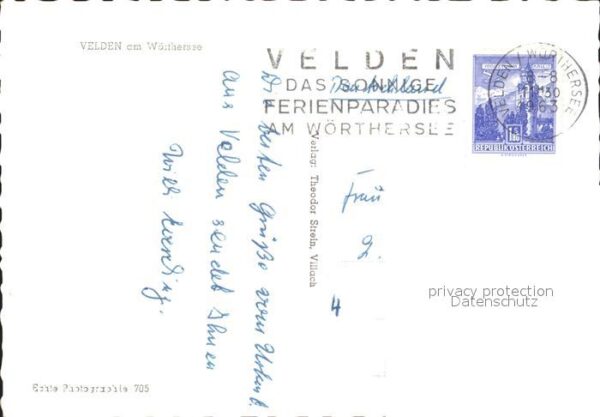 VELDEN am Wörthersee
VELDEN
DAS SONNIGE
FERIENPARADIES
AM WÖRTHERSEE
Deutschland
VELDEN / WÖRTHERSEE
-8
1963
REPUBLIK ÖSTERREICH
Die besten Grüße vom Urlaub
aus Velden sendet Ihnen
Verlag: Theodor Strein, Villach
Frau
L.
4
privacy protection
Datenschutz
Echte Photographie 705